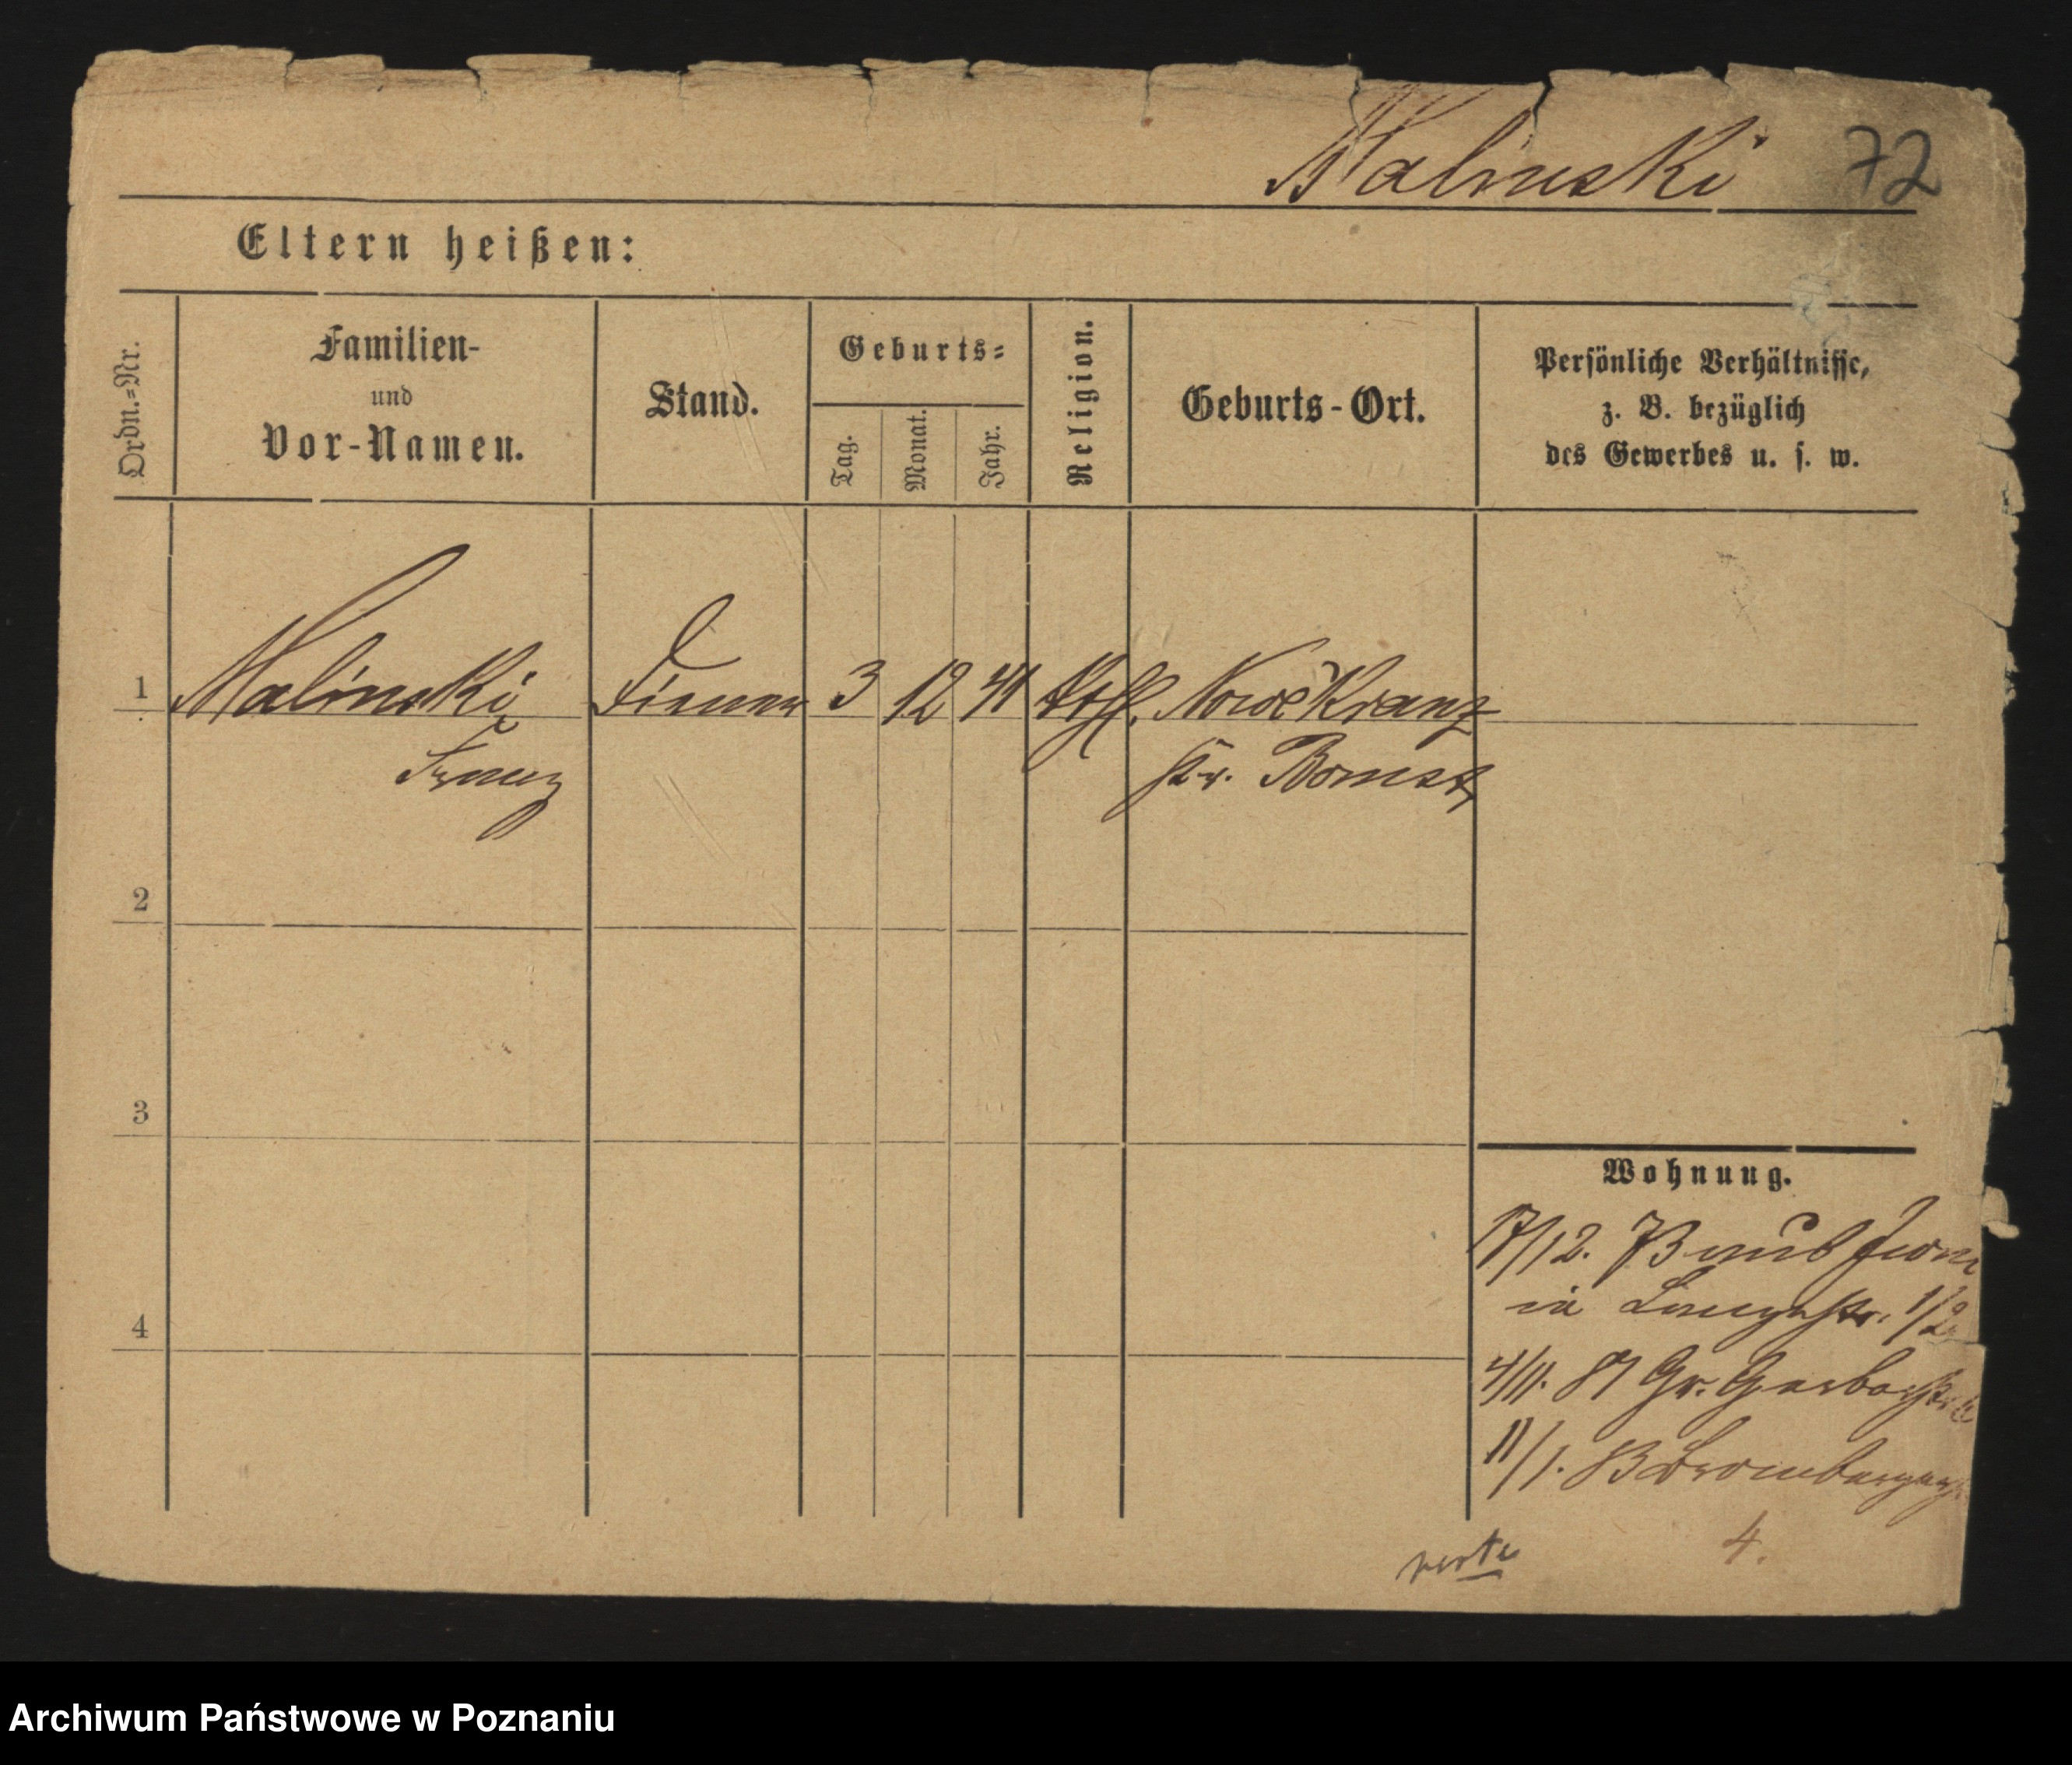 Malinski 72
Eltern heißen:
Ordn.=Nr.
Familien-
und
Vor-Namen.
Stand.
Geburts=
Tag.
Monat.
Jahr.
Religion.
Geburts-Ort.
Persönliche Verhältnisse,
z. B. bezüglich
des Gewerbes u. s. w.
1 Malinski Diener 3 12 41 Kth. Nowe Kranz
Franz Kr. Bomst
2
3
4
Wohnung.
17/12.
in Langestr. 1/2
4/11. 87 Gr. Gerberstr
11/1. Brombergerstr
4.
verte
Archiwum Państwowe w Poznaniu